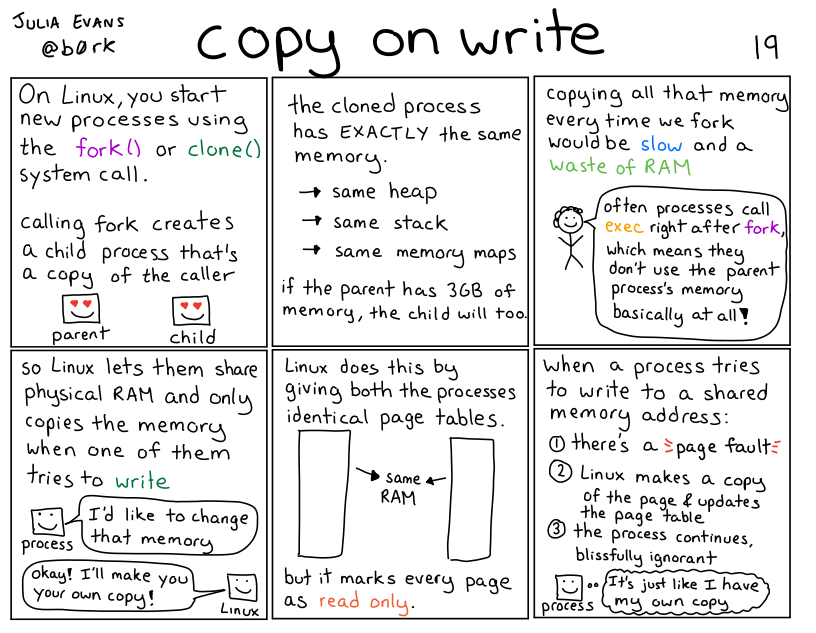 JULIA EVANS
@b0rk
copy on write
19
On Linux, you start
new processes using
the fork() or clone()
system call.
calling fork creates
a child process that's
a copy of the caller
parent
child
the cloned process
has EXACTLY the same
memory.
→ same heap
→ same stack
→ same memory maps
if the parent has 3GB of
memory, the child will too.
copying all that memory
every time we fork
would be slow and a
waste of RAM
often processes call
exec right after fork,
which means they
don't use the parent
process's memory
basically at all!
so Linux lets them share
physical RAM and only
copies the memory
when one of them
tries to write
I'd like to change
that memory
process
okay! I'll make you
your own copy!
Linux
Linux does this by
giving both the processes
identical page tables.
same
RAM
but it marks every page
as read only.
when a process tries
to write to a shared
memory address:
① there's a page fault
② Linux makes a copy
of the page & updates
the page table
③ the process continues,
blissfully ignorant
It's just like I have
my own copy
process